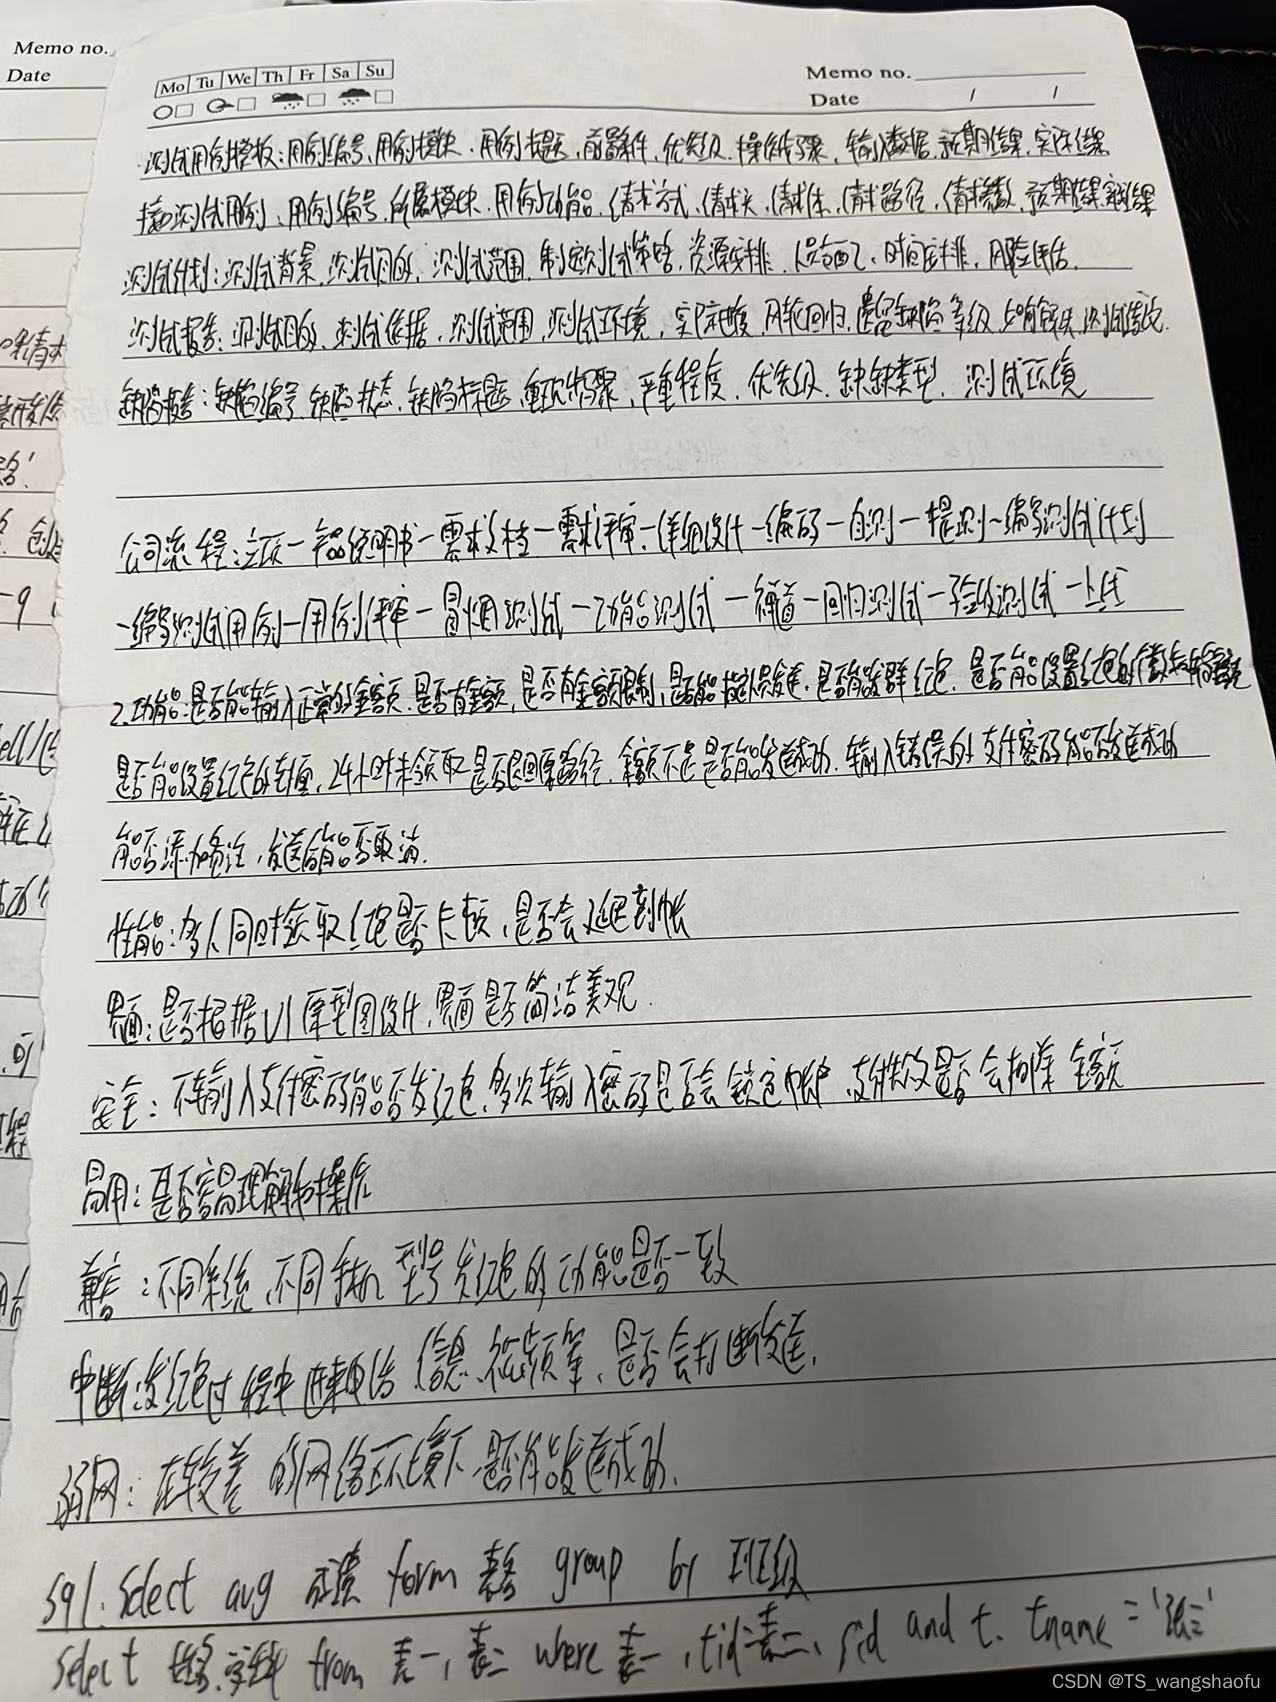 Memo no.
Date
Mo Tu We Th Fr Sa Su
Memo no.
Date / /
测试用例模板:用例编号、用例模块、用例标题、前置条件、优先级、操作步骤、输入数据、预期结果、实际结果
接口测试用例、用例编号、所属模块、用例功能、请求方式、请求头、请求体、请求路径、请求参数、预期结果、实际结果
测试计划:测试背景、测试目的、测试范围、制定测试策略、资源安排、人员分配、时间安排、风险评估、
测试报告:测试目的、测试依据、测试范围、测试环境、实际进度、几轮回归、遗留缺陷等级、测试结论.
缺陷报告:缺陷编号、缺陷状态、缺陷标题、重现步骤、严重程度、优先级、缺陷类型、测试环境
公司流程:立项一产品说明书一需求文档一需求评审一详细设计一编码一自测一提测一编写测试计划
一编写测试用例一用例评审一冒烟测试一功能测试一禅道一回归测试一验收测试一上线
2.功能:是否能输入正常的金额、是否有金额、是否有金额限制、是否能指定人发送、是否能发群红包、是否能设置红包的个数
是否能设置红包的封面、24小时未领取是否退回原路径、金额不足是否能发送成功、输入错误的支付密码能否发送成功
能否添加备注、发送后能否取消.
性能:多人同时领取红包是否卡顿、是否会延迟到帐
界面:是否根据UI原型图设计、界面是否简洁美观.
安全:不输入支付密码能否发红包、多次输入密码是否会锁定帐户、支付失败是否会扣除金额
易用:是否容易理解和操作
兼容:不同系统、不同手机型号发红包的功能是否一致
中断:发红包过程中进来电话、信息、视频等、是否会打断发送.
弱网:在较差的网络环境下是否能发送成功.
sql.Select avg 成绩 form 表名 group by 班级
Select 姓名. from 表一,表二 where 表一.tid=表二.sid and t.tname='张三'
CSDN @TS_wangshaofu